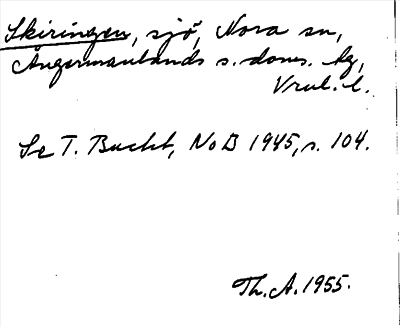 Skiringen, sjö, Nora sn,
Ångermanlands s. doms. hg,
Vnul. l.
Se T. Bucht, NoB 1945, s. 104.
Th. A. 1955.